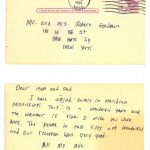 Mr. and Mrs. Robert Goodman
W 86 ST
New York
New York
Dear Mom and Dad
I have arrived safely in Meridian
Mississippi. This is a wonderful town and
the weather is fine. I wish you were
here. The people in this city are wonderful
and our reception was very good.
All my love